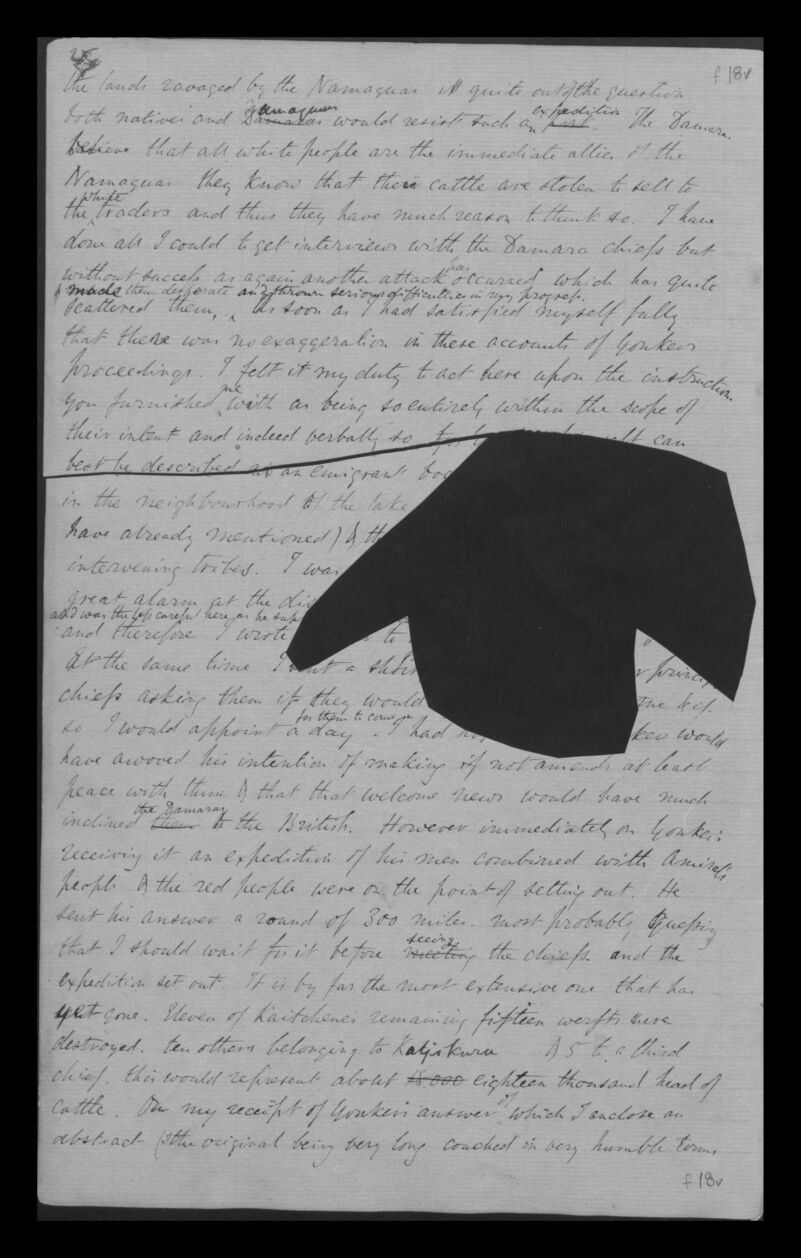 f 18v
the lands ravaged by the Namaquas is quite out of the question.
both natives and Damaras Namaquas would resist such an part expedition. The Damaras
believe that all white people are the immediate allies of the
Namaquas they know that their cattle are stolen to sell to
the white traders and thus they have much reason to think so. I have
done all I could to get interviews with the Damara chiefs but
without success as again another attack has occurred which has quite
scattered them,
made them desperate and thrown serious difficulties in my progress.
As soon as I had satisfied myself fully
that there was no exaggeration in these accounts of Yonkers
proceedings. I felt it my duty to act here upon the instructions
you furnished me with as being so entirely within the scope of
their intent and indeed verbally so for
can
best be described as an emigrant
in the neighbourhood of the lake
have already mentioned) & th
intervening tribes. I was
great alarm at the
and was the less careful here, as he
and therefore I wrote to
At the same time I sent a short
chiefs asking them if they would
so I would appoint a day for them to come. I had
would
have avowed his intention of making if not amends at least
peace with them & that that welcome news would have much
inclined them the Damaras to the British. However immediately on Yonkers
receiving it an expedition of his men combined with Amiral's
people & the red people were on the point of setting out. He
sent his answer a round of 300 miles. most probably guessing
that I should wait for it before meeting seeing the chiefs and the
expedition set out. It is by far the most extensive one that has
yet gone. Eleven of Kaitchene's remaining fifteen werfts were
destroyed. ten others belonging to Katjikuru & 5 to a third
chief. this would represent about 18.000 eighteen thousand head of
cattle. On my receipt of Yonkers answer of which I enclose an
abstract (the original being very long couched in very humble terms
f 18v